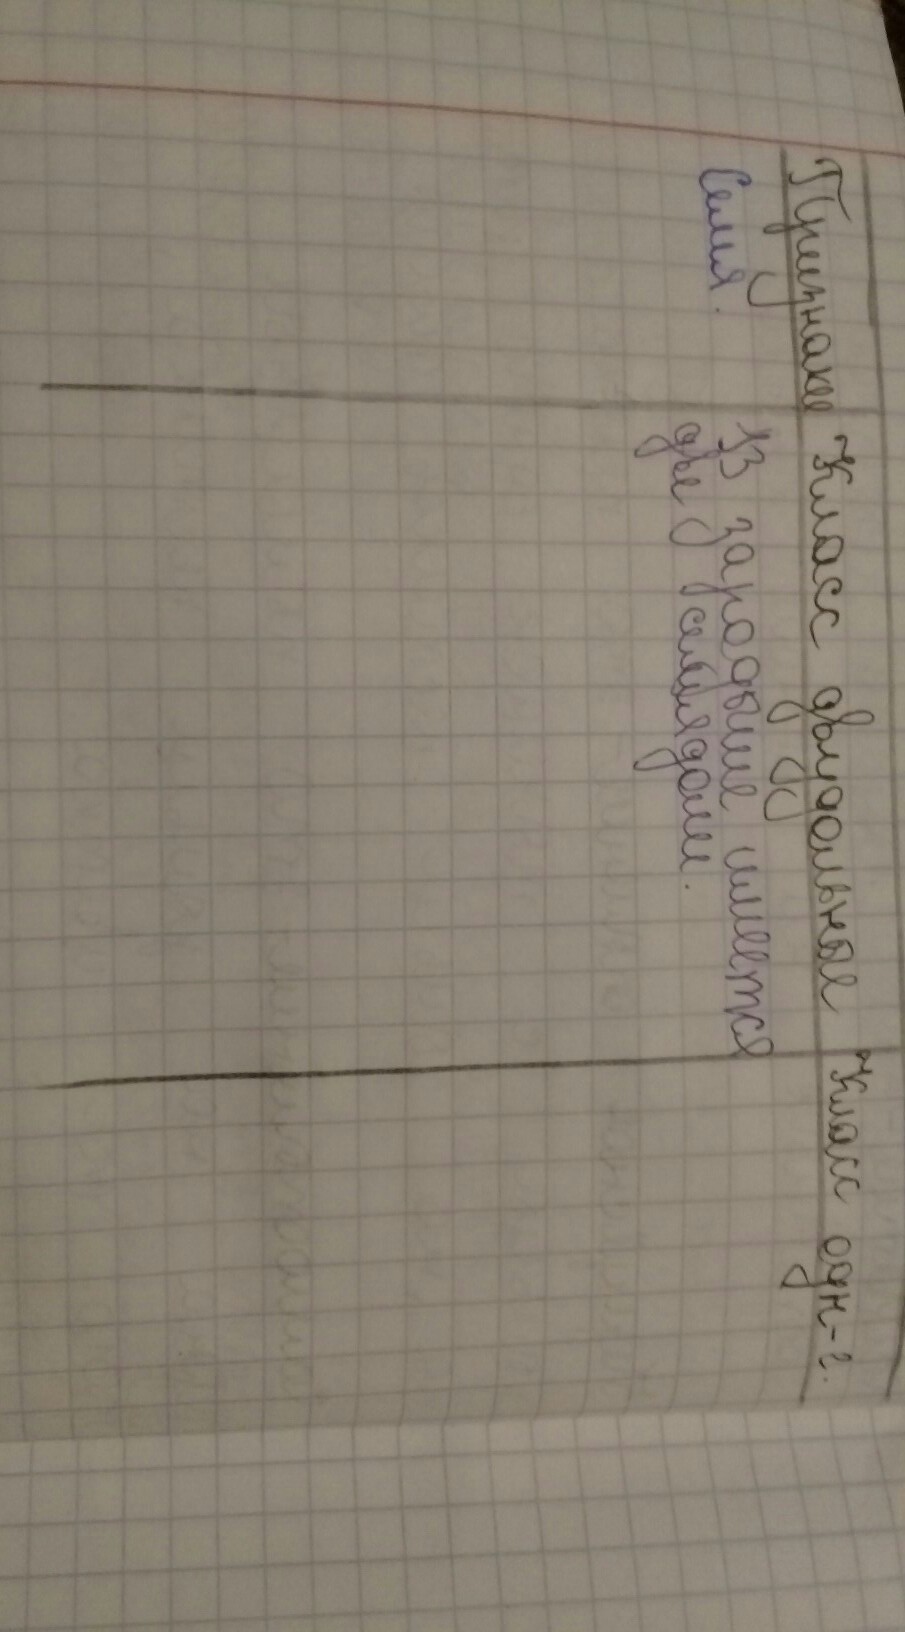 Признаки Класс двудольные Класс одн-е.
Семя. В зародыше имеется
две семядоли.